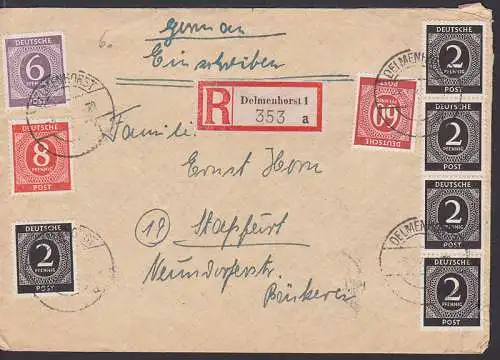 6.
german
Einschreiben
DEUTSCHE
6
PFENNIG
POST
DELMENHORST
R
Delmenhorst 1
353 a
DEUTSCHE
60
PFENNIG
POST
DELMENHORST
DEUTSCHE
2
PFENNIG
POST
DEUTSCHE
8
PFENNIG
POST
Familie
Ernst Horn
DEUTSCHE
2
PFENNIG
POST
DEUTSCHE
2
PFENNIG
POST
18 Stassfurt
Neundorferstr.
DEUTSCHE
2
PFENNIG
POST
DELMENHORST
DEUTSCHE
2
PFENNIG
POST